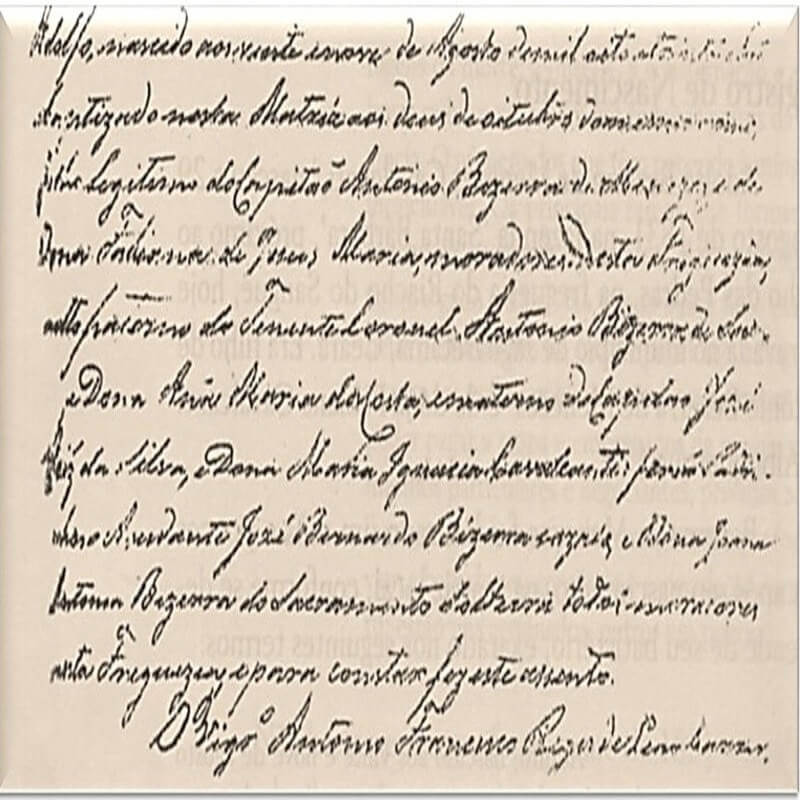 Adolfo, nascido aos vinte e nove de Agosto de mil oito
baptizado nesta Matriz aos de outubro do mesmo
filho legitimo do Capitaõ Antonio Bezerra de de
Dona Fabianna de Jesus Maria, moradores nesta Freguezia,
do Tenente Coronel Antonio Bezerra de
e Dona Anna Maria da Costa, e materno do Capitaõ José
da Silva, e Dona Maria Ignacia Cavalcante:
Ajudante José Bernardo Bizerra e Dona Joana
Antonia Bezerra do Sacramento Solteira todos moradores
nesta Freguezia, e para constar fez este assento.
O Vigrº Antonio Francisco